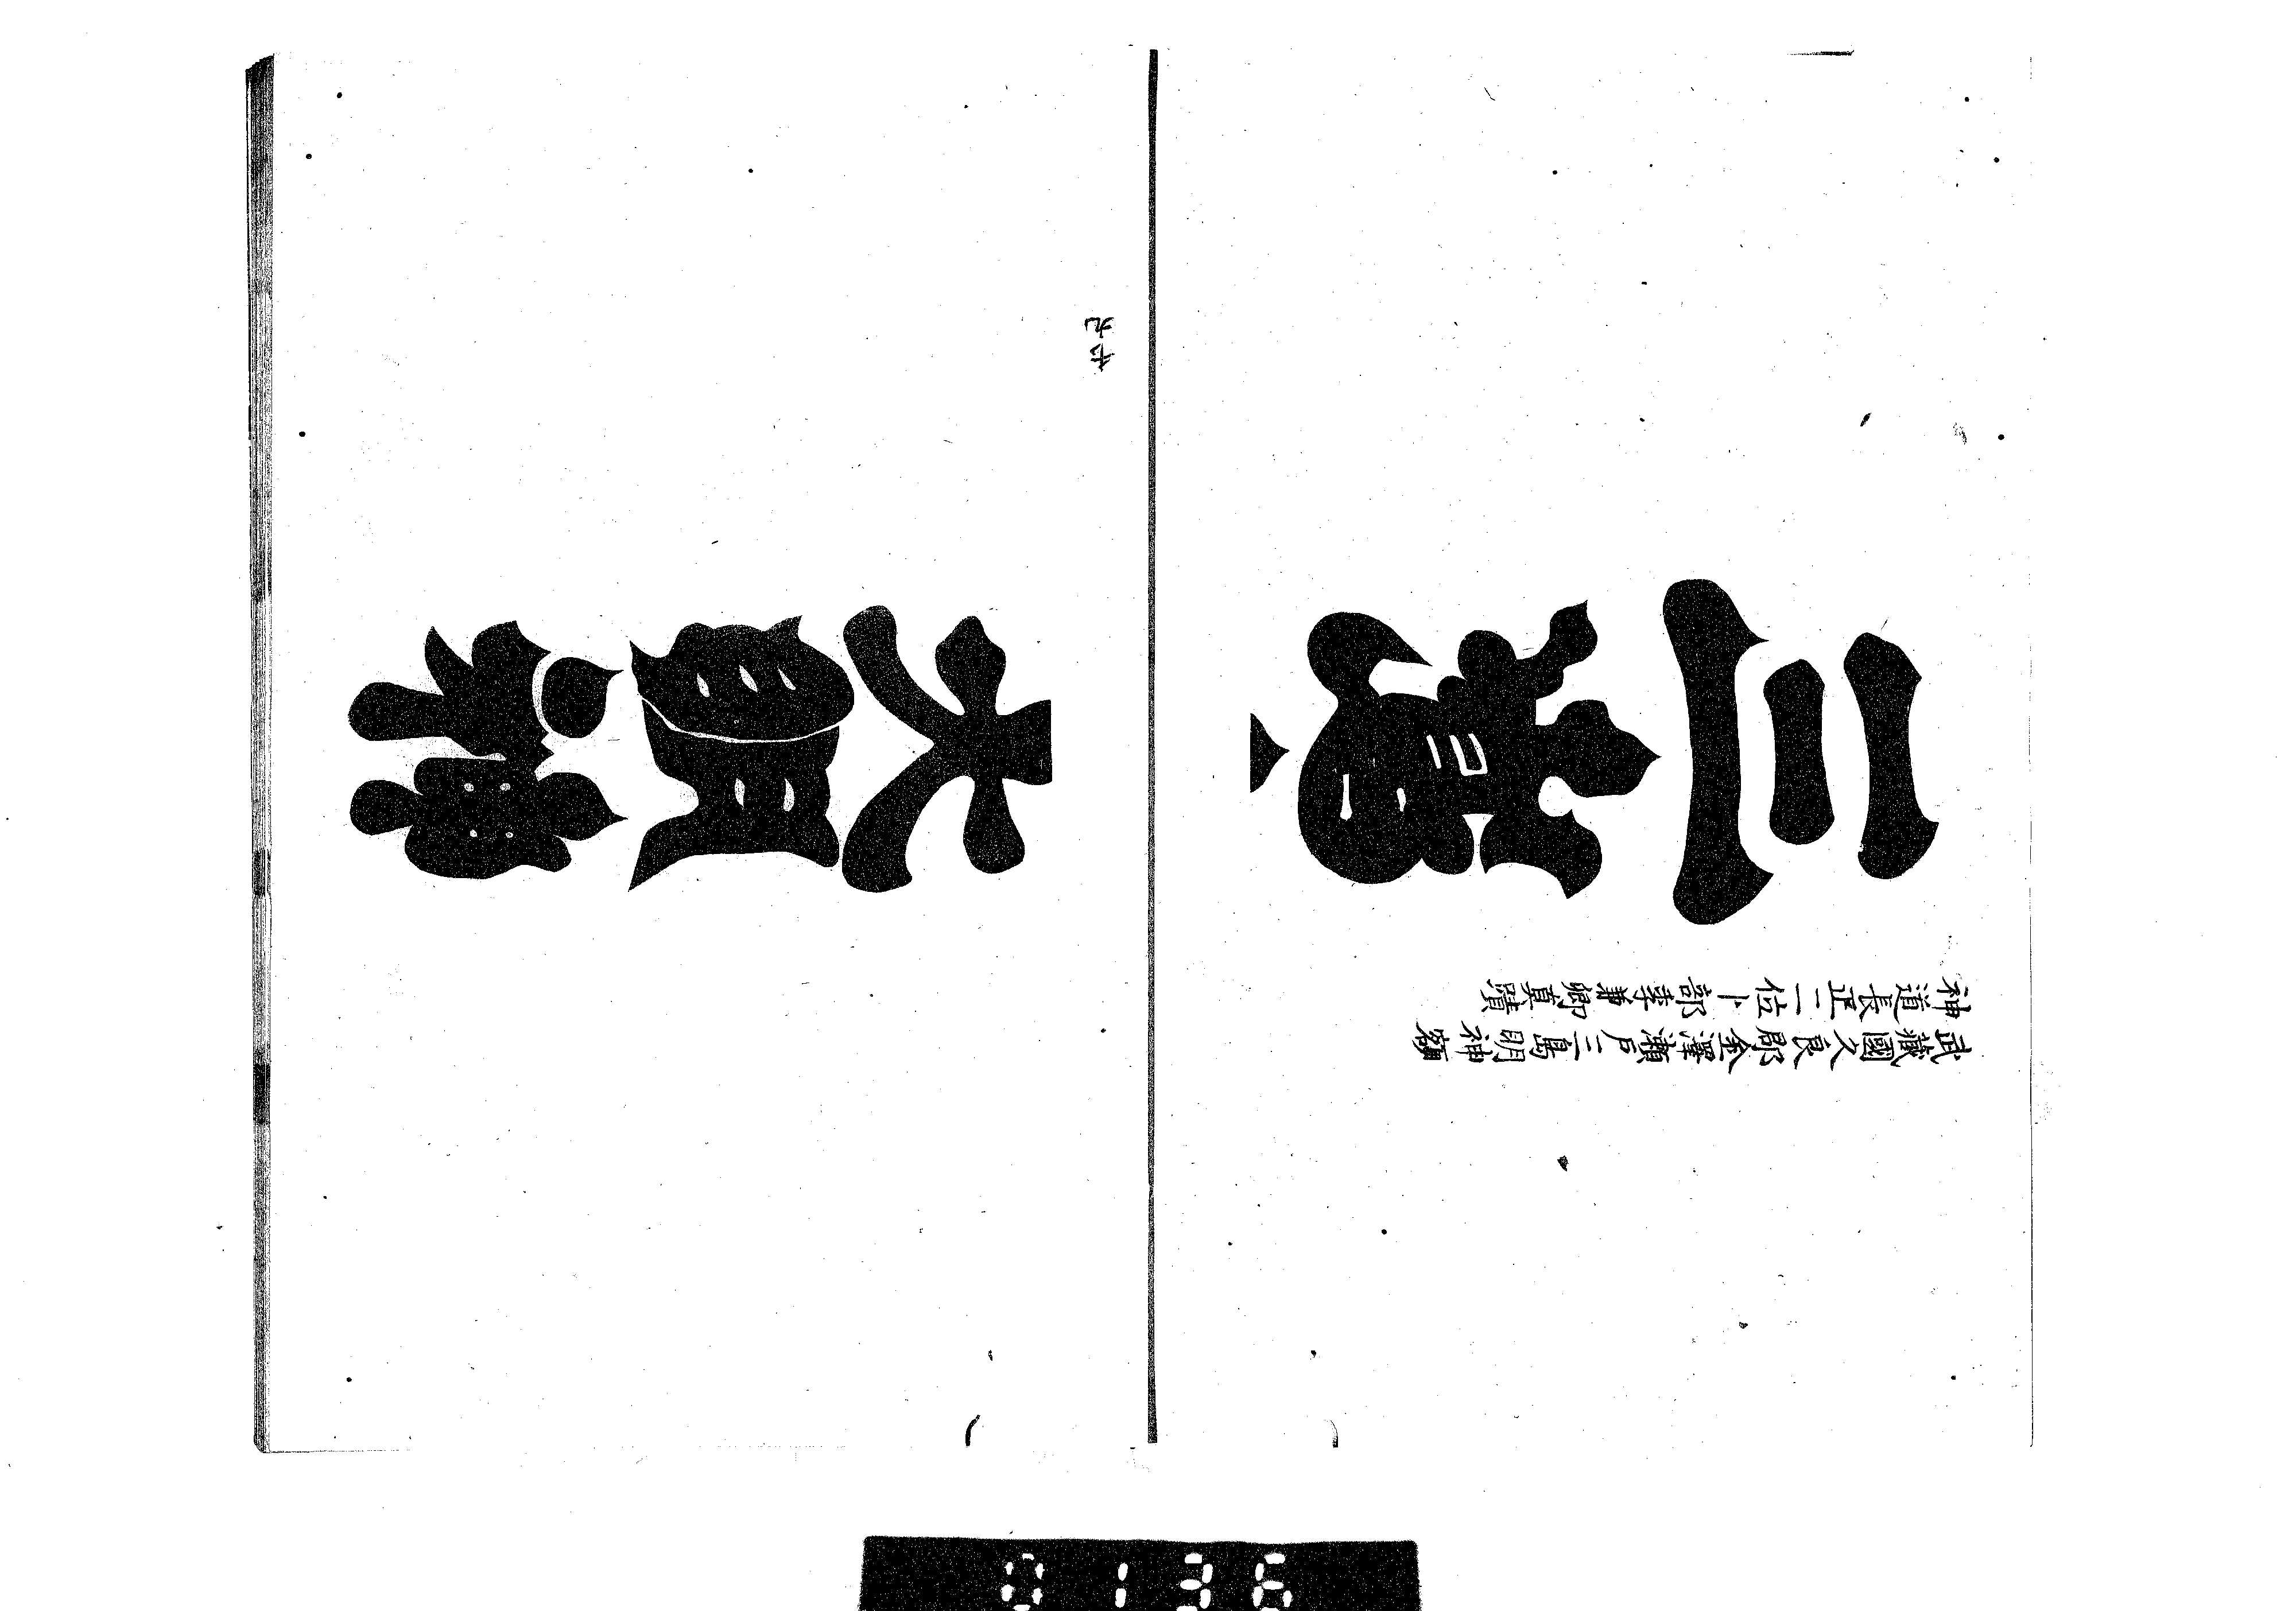 武藏國久良郡金澤瀬戸三島明神額
神道長正二位卜部季兼卿真蹟
三島
大明神
0136